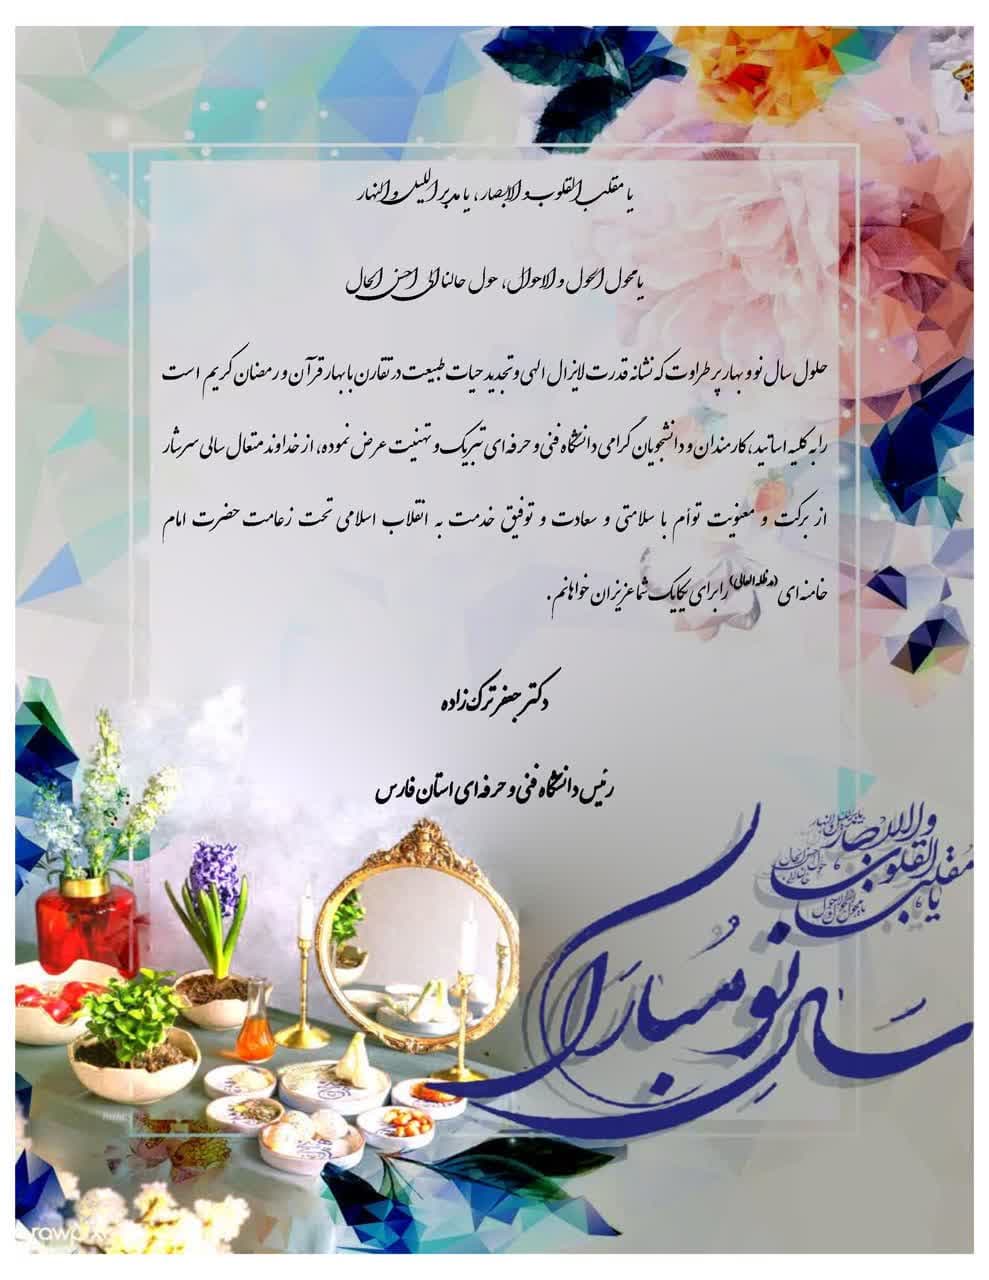 یا مقلب القلوب و الابصار، یا مدبر اللیل و النهار
یا محول الحول و الاحوال، حول حالنا الی احسن الحال
حلول سال نو و بهار پر طراوت که نشانه قدرت لایزال الهی و تجدید حیات طبیعت در تقارن با بهار قرآن و رمضان کریم است
را به کلیه اساتید، کارمندان و دانشجویان گرامی دانشگاه فنی و حرفه ای تبریک و تهنیت عرض نموده، از خداوند متعال سالی سرشار
از برکت و معنویت توأم با سلامتی و سعادت و توفیق خدمت به انقلاب اسلامی تحت زعامت حضرت امام
خامنه ای (مدظله العالی) را برای یکایک شما عزیزان خواهانم.
دکتر جعفر ترک زاده
رئیس دانشگاه فنی و حرفه ای استان فارس
یا مقلب القلوب و الابصار
سال نو مبارک
rawpixel